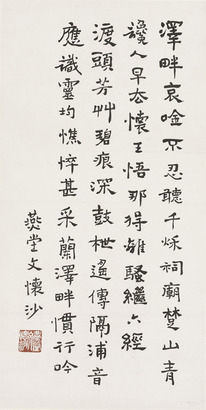 澤畔哀唫不忍聽千秌祠廟楚山青
讒人早去懷王悟那得離騷繼六經
渡頭芳艸碧痕深鼓枻遙傳隔浦音
應識靈均憔悴甚采蘭澤畔慣行吟
燕堂文懷沙